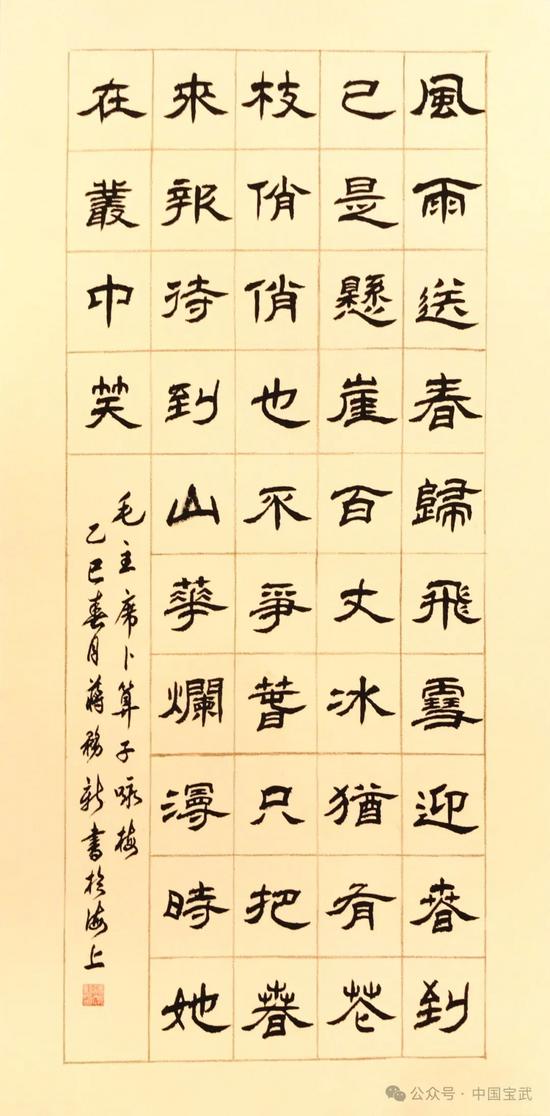 風雨送春歸飛雪迎春到
已是懸崖百丈冰猶有花
枝俏俏也不爭春只把春
來報待到山華爛漫時她
在叢中笑
毛主席卜算子咏梅
乙巳春月蔣務新書於海上
公众号·中国宝武